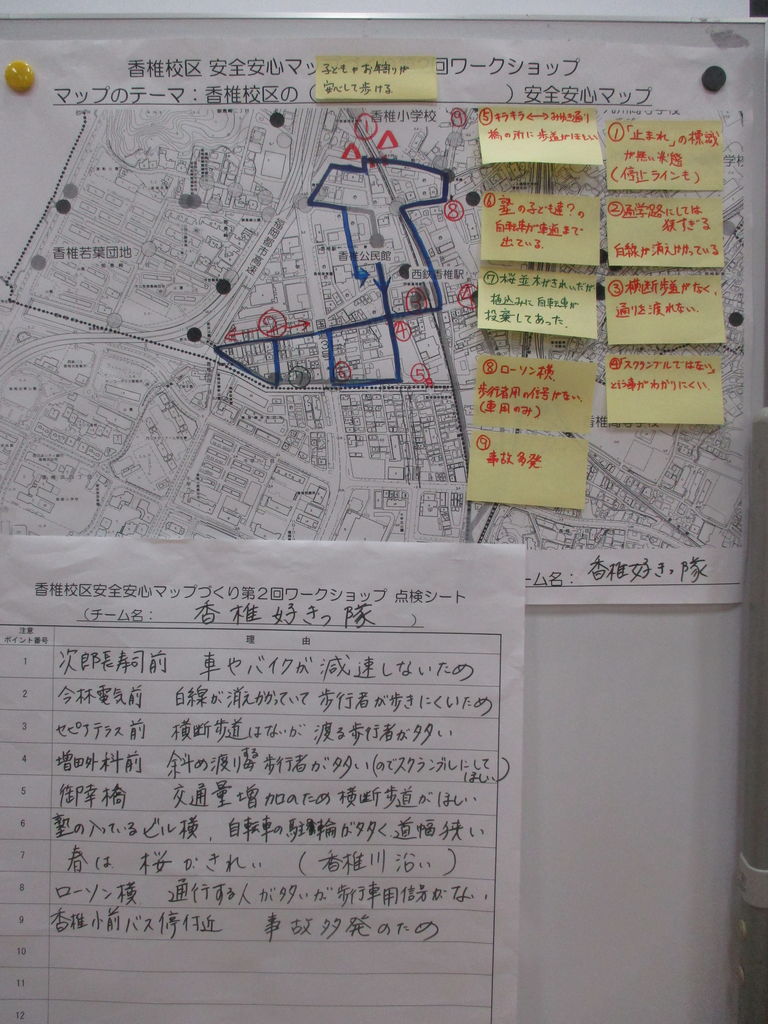 香椎校区 安全安心マッ
回ワークショップ
子どもやお年寄りが
安心して歩ける
マップのテーマ：香椎校区の（
）安全安心マップ
香椎小学校
香椎若葉団地
香椎公民館
西鉄香椎駅
①
②
③
④
⑤
⑥
⑧
⑨
⑤キラキラ⟷みゆき通り
橋の所に歩道がほしい
①「止まれ」の標識
が無い状態
(停止ラインも)
⑥塾の子ども達？の
自転車が車道まで
出ている.
②通学路にしては
狭すぎる
白線が消えかかっている
⑦桜並木がきれいだが
植込みに自転車が
投棄してあった.
③横断歩道がなく、
通りを渡れない.
⑧ローソン横
歩行者用の信号がない.
(車用のみ)
④「スクランブルではない」
という事がわかりにくい.
⑨
事故多発
ーム名： 香椎好きっ隊
香椎校区安全安心マップづくり第2回ワークショップ 点検シート
（チーム名： 香椎好きっ隊 ）
注意
ポイント番号
理 由
1 次郎長寿司前 車やバイクが減速しないため
2 今林電気前 白線が消えかかっていて歩行者が歩きにくいため
3 セピアテラス前 横断歩道はないが渡る歩行者が多い
4 増田外科前 斜め渡りする歩行者が多い(のでスクランブルにしてほしい)
5 御幸橋 交通量増加のため横断歩道がほしい
6 塾の入っているビル横、自転車の駐輪が多く道幅狭い
7 春は桜がきれい (香椎川沿い)
8 ローソン横 通行する人が多いが歩行車用信号がない.
9 香椎小前バス停付近 事故多発のため
10
11
12